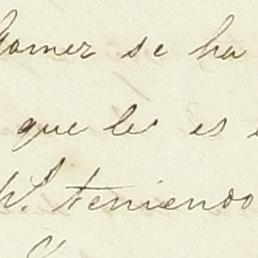 Gomez se ha
que le es
S. teniendo